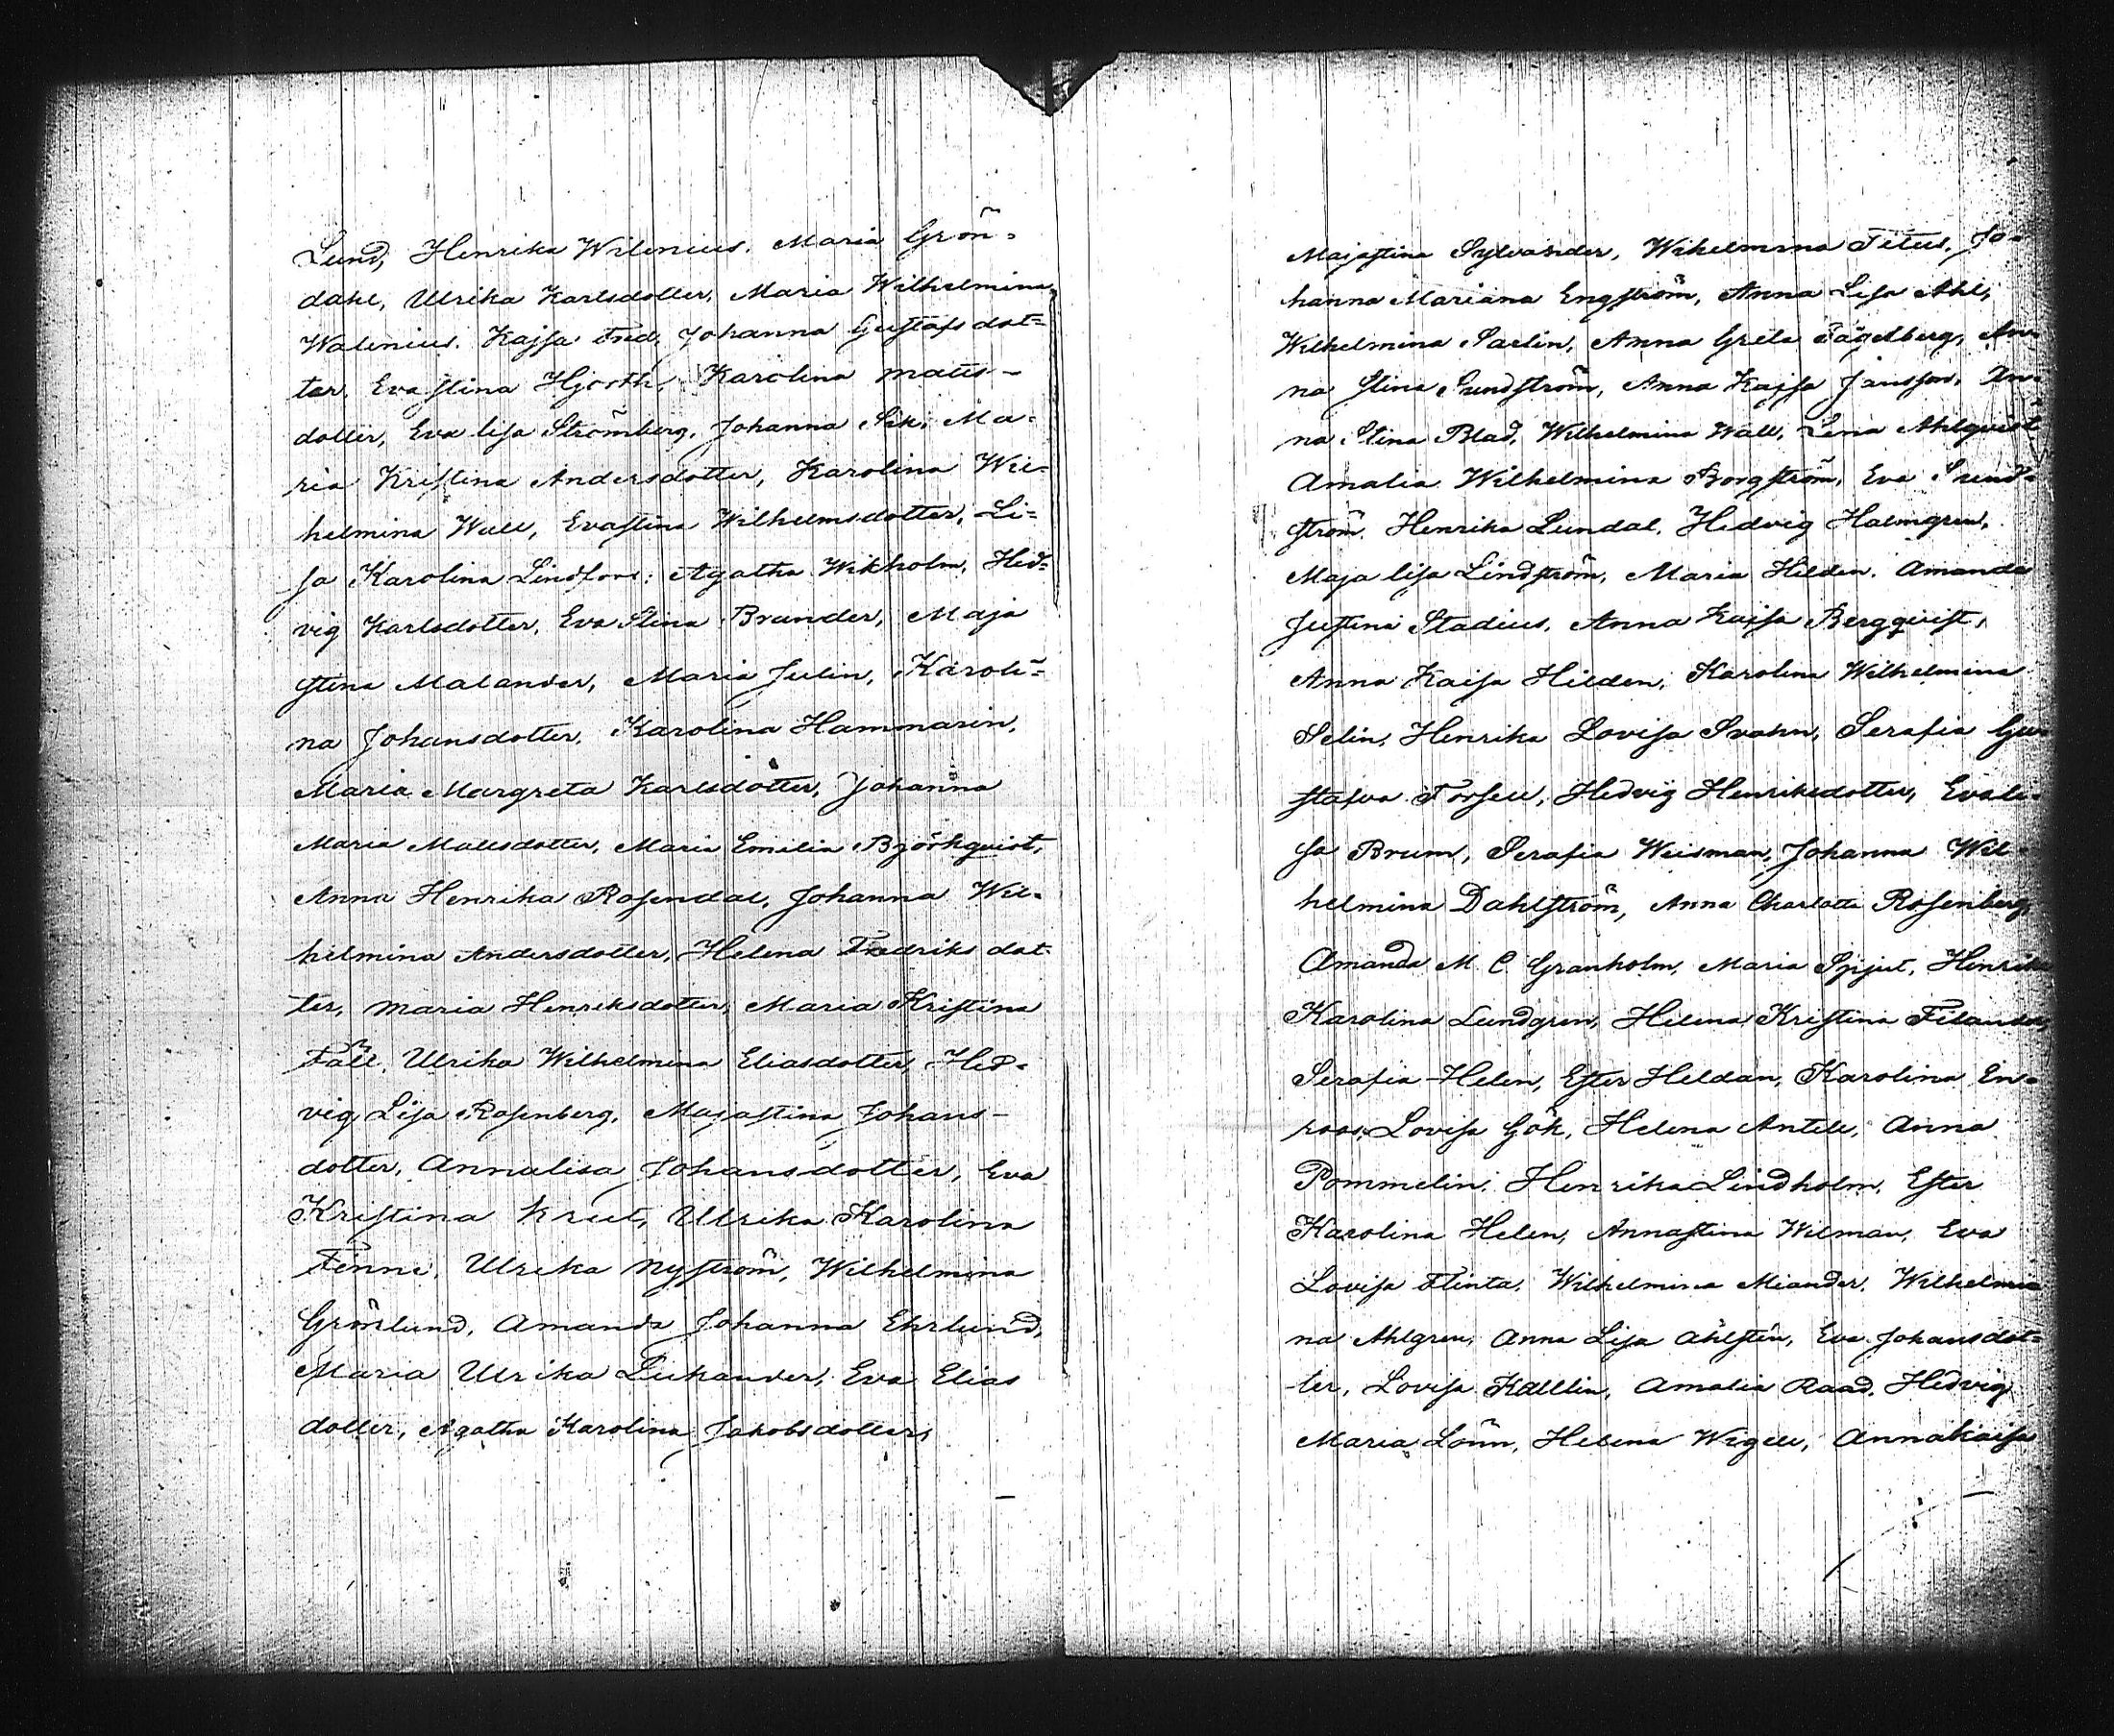 Lund, Henrika Wilenius, Maria Grön=
dahl, Ulrika Karlsdotter, Maria Wilhelmina
Walenius, Kajsa Fred, Johanna Gustafsdot=
ter, Evastina Hjorth, Karolina Matts-
dotter, Eva lisa Strömberg, Johanna Sik, Ma=
ria Kristina Andersdotter, Karolina Wil=
helmina Wall, Evastina Wilhelmsdotter, Li=
sa Karolina Lindfors, Agatha Wikholm, Hed=
vig Karlsdotter, Eva Stina Brander, Maja
stina Malander, Maria Julin, Karoli=
na Johansdotter, Karolina Hammarin,
Maria Margreta Karlsdotter, Johanna
Maria Mattsdotter, Maria Emilia Björkqvist,
Anna Henrika Rosendal, Johanna Wil=
helmina Andersdotter, Helena Fredriksdot=
ter, Maria Henriksdotter, Maria Kristina
Fäll, Ulrika Wilhelmina Eliasdotter, Hed=
vig Lisa Rosenberg, Majastina Johans-
dotter, Annalisa Johansdotter, Eva
Kristina Krut, Ulrika Karolina
Finne, Ulrika Nyström, Wilhelmina
Grönlund, Amanda Johanna Ehrlund,
Maria Ulrika Lukander, Eva Elias
dotter, Agatha Karolina Jakobsdotter,
Majastina Sylvander, Wilhelmina Titus, Jo=
hanna Mariana Engström, Anna Lisa Ahl,
Wilhelmina Sarlin, Anna Greta Fägelberg, An=
na Stina Sundström, Anna Kajsa Jansson, An=
na Stina Blad, Wilhelmina Wall, Lena Ahlqvist
Amalia Wilhelmina Borgström, Eva Sund=
ström, Henrika Lundal, Hedvig Halmgren,
Maja lisa Lindström, Maria Hilden, Amanda
Justina Stadius, Anna Kajsa Bergqvist,
Anna Kaisa Hilden, Karolina Wilhelmina
Selin, Henrika Lovisa Svahn, Serafia Gu=
stafva Forsell, Hedvig Henriksdotter, Evali=
sa Brum, Serafia Weisman, Johanna Wil=
helmina Dahlström, Anna Charlotta Rosenberg,
Amanda M. C. Granholm, Maria Spjut, Henrika
Karolina Lundgren, Helena Kristina Filander,
Serafia Helen, Ester Heldan, Karolina En=
roos, Lovisa Gök, Helena Antell, Anna
Pommelin, Henrika Lindholm, Ester
Karolina Helen, Annastina Wilman, Eva
Lovisa Flinta, Wilhelmina Miander, Wilhelmi
na Ahlgren, Anna Lisa Ahlstén, Eva Johansdot=
ter, Lovisa Kallin, Amalia Raad, Hedvig
Maria Lönn, Helena Wigell, Annakaisa